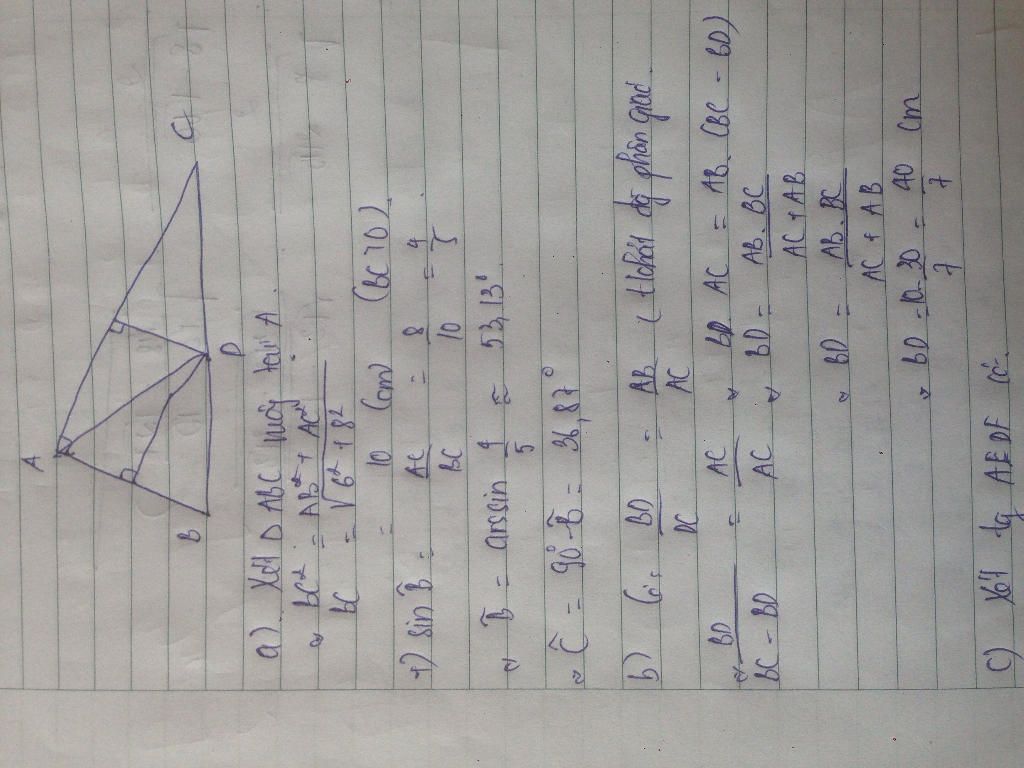 A
B
D
C
a) Xét Δ ABC vuông tại A
BC² = AB² + AC²
BC = √6² + 8²
= 10 (cm) (BC > 0)
+) sin B̂ = AC/BC = 8/10 = 4/5
B̂ = arcsin 4/5 ≈ 53,13°
Ĉ = 90° - B̂ = 36,87°
b) Có: BD/DC = AB/AC (t/chất đg phân giác)
BD/BC - BD = AC/AC BD. AC = AB. (BC - BD)
BD = AB. BC/AC + AB
BD = AB. BC/AC + AB
BD = 10 - 30/7 = 40/7 cm
c) Xét tg AEDF có: